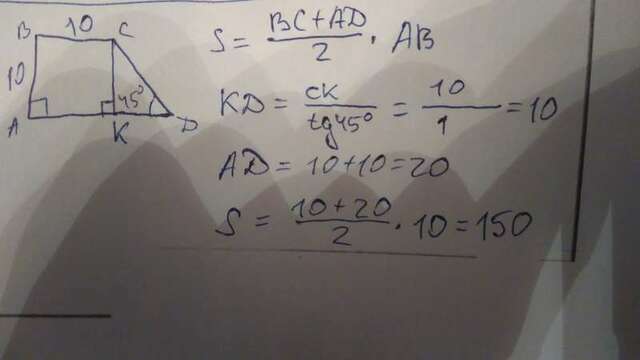 B 10 C
10
45°
A K D
S = BC+AD/2 · AB
KD = CK/tg45° = 10/1 = 10
AD = 10+10=20
S = 10+20/2 · 10 = 150